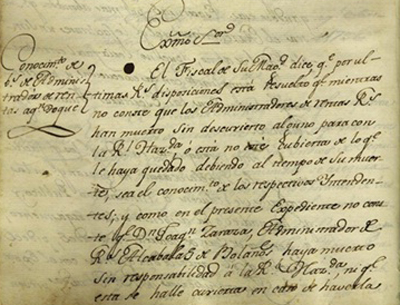 Exmo Sor
Conocimto de
bs de Adminis
tradores de ren
tas aqn toque
El Fiscal de Su Magd dice, qe por ul
timas Rs disposiciones está resuelto qe mientras
no conste que los Administradores de rentas Rs
han muerto sin descuvierto alguno para con
la Rl Hazda ó esta no esté cubierta de lo qe
le haya quedado debiendo al tiempo de su muer
te, sea el conocimto de los respectivos Intenden
tes; y como en el presente Expediente no cons
te qe Dn Joaqn Zarazua, Administrador de
Rs Alcabalas de Bolaños haya muerto
sin responsabilidad á la Rl Hazda, ni qe
esta se halle cuvierta en caso de haverla